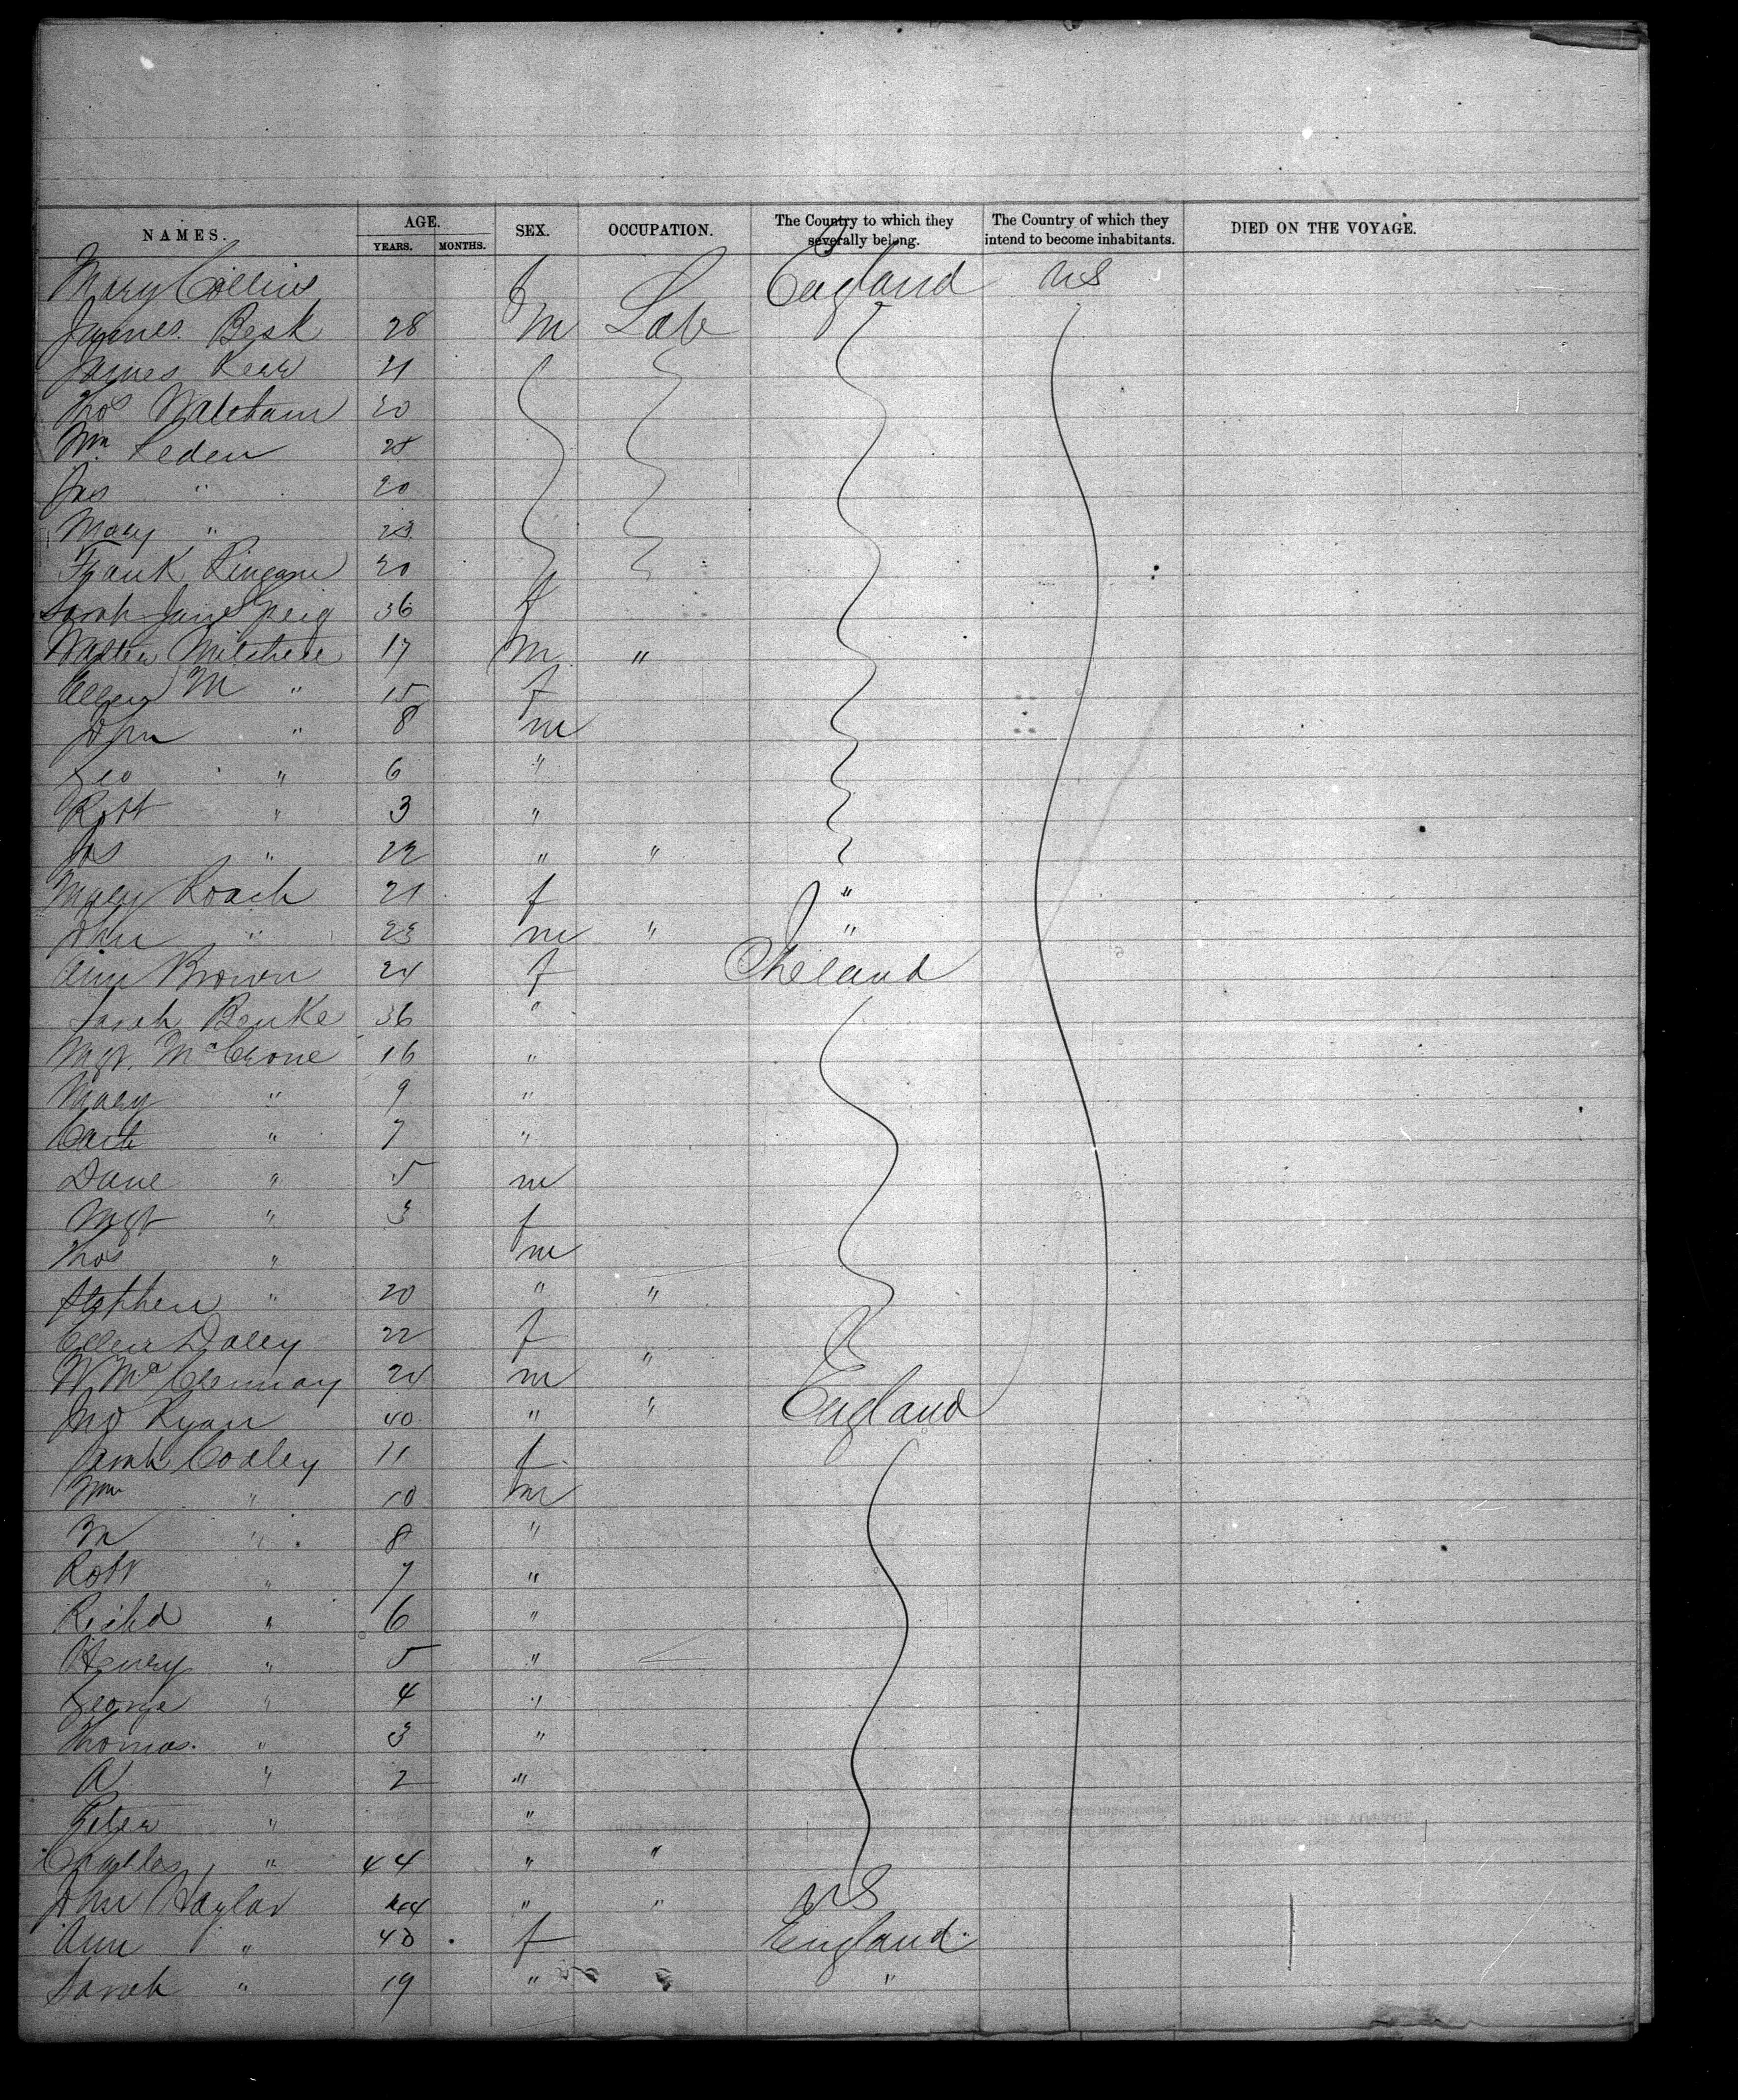 NAMES. AGE. YEARS. MONTHS. SEX. OCCUPATION. The Country to which they severally belong. The Country of which they intend to become inhabitants. DIED ON THE VOYAGE.
Mary Collins f England US
James Besk 28 m Lab
James Kerr 21
Thos Waltham 20
Wm Peden
Jas " 20
Mary "
Frank 20
Sarah Jane Greig 36 f
Walter Mitchell 17 m "
Ellen M " 15 f
John " 8 m
Geo " 6 "
Robt " 3 "
Jos " 22 " "
Mary Roach 21 f "
John " 23 m " "
Ann Brown 24 f Ireland
Sarah Benke 36 "
Mgt. McCrone 16 "
Mary " 9 "
Cath " 7 "
Dane " 5 m
Mgt " 3 f
Thos " m
Stephen " 20 " "
Ellen Daley 22 f
W Mc 20 m "
Jno Ryan 40 " " England
Sarah Coaley 11 f
Wm " 10 m
M " 8 "
Robt " 7 "
Richd " 6 "
Henry " 5 "
George " 4 "
Thomas " 3 "
A " 2 "
Peter " "
Charles " 44 " "
John Haylor 44 " " US
Ann " 40 f England
Sarah " 19 " "